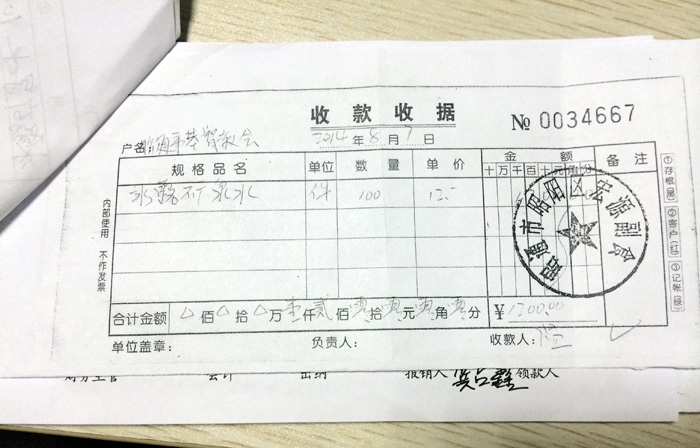 收款收据
№ 0034667
户名: 2014年8月7日
规格品名 单位 数量 单价 金额 备注
十万千百十元角分
冰露矿泉水 件 100 12.-
昭通市昭阳区宏源副食
合计金额 佰 拾 万壹仟贰佰零拾零元零角零分 ¥1200.00
单位盖章: 负责人: 收款人:
内部使用 不作发票
①存根(黑) ②客户(红) ③记帐
财务主管 会计 出纳 报销人 领款人